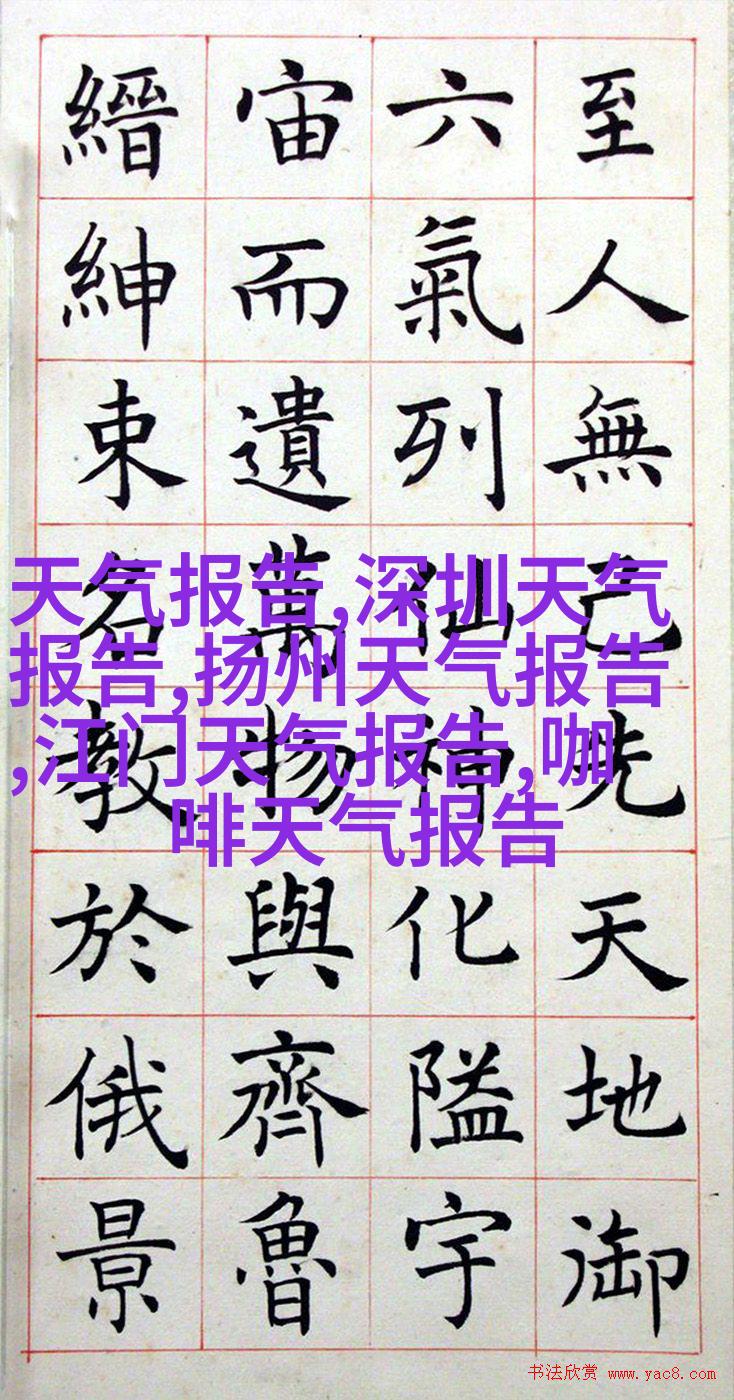 至人無己先天地御
六氣列仙神化隘宇
宙而遺萬物與齊魯
縉紳束名教於俄景
天气报告,深圳天气
报告,扬州天气报告
,江门天气报告,咖
啡天气报告
书法欣赏 www.yac8.com